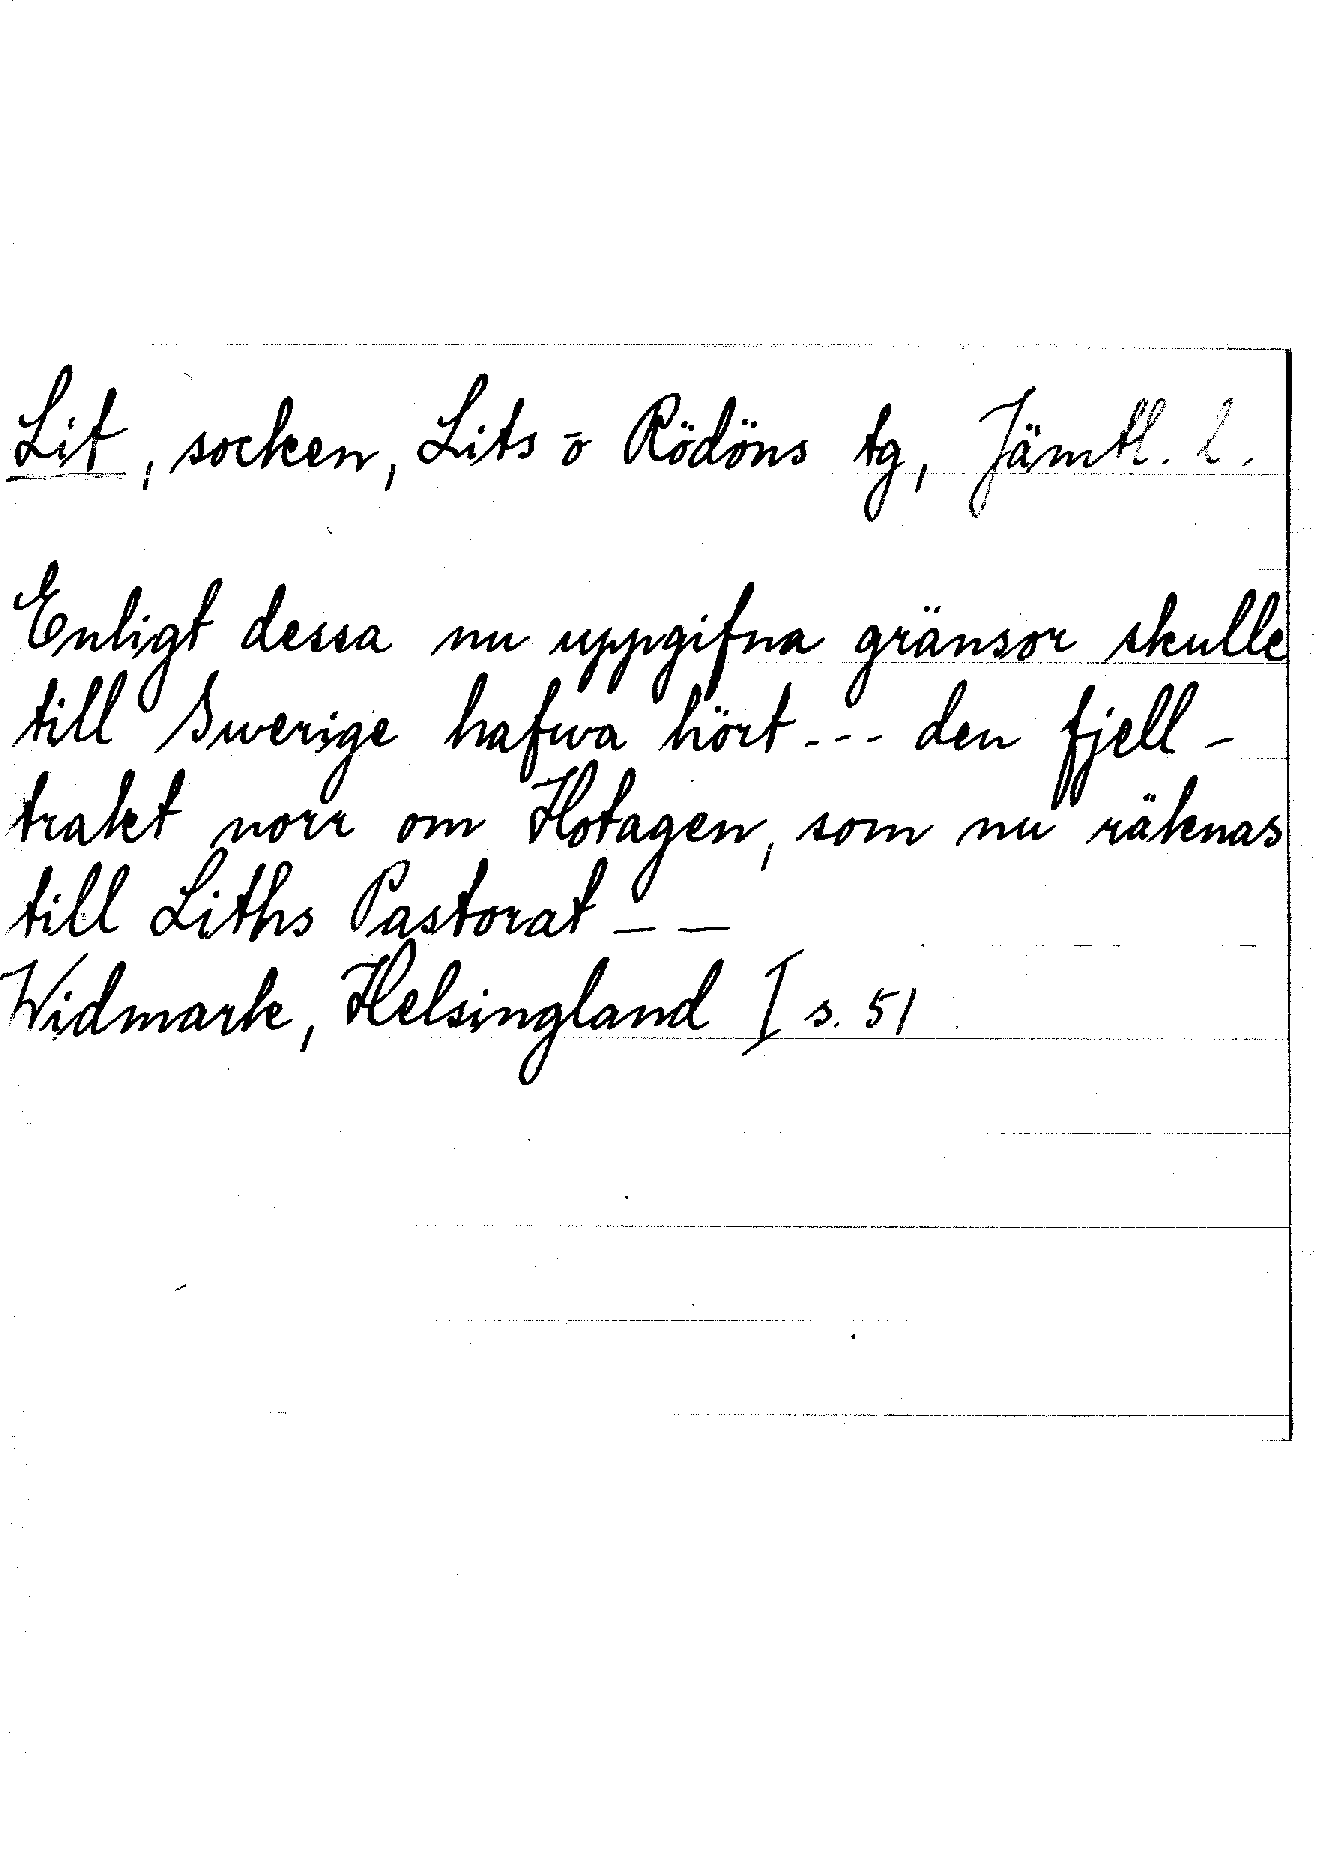 Lit, socken, Lits o Rödöns tg, Jämtl. l.
Enligt dessa nu uppgifna gränsor skulle
till Swerige hafwa hört --- den fjell-
trakt norr om Hotagen, som nu räknas
till Liths Pastorat — —
Widmark, Helsingland I s. 51